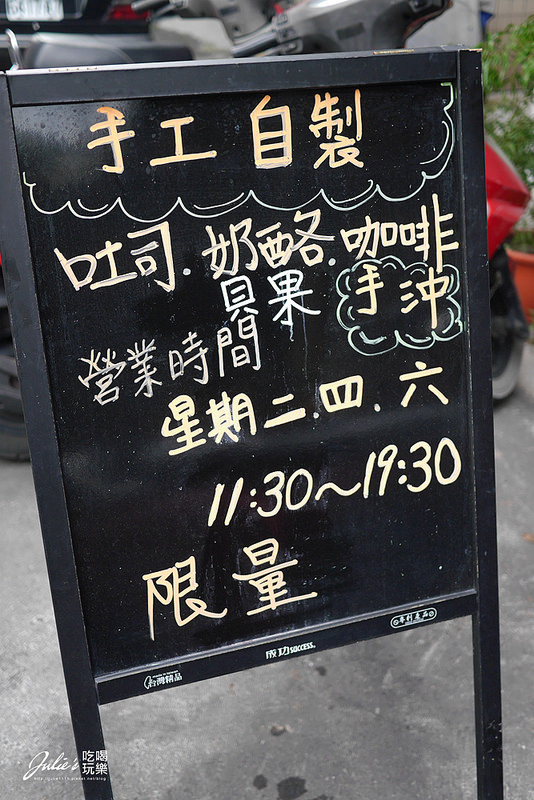 手工 自製
吐司.奶酪.咖啡
貝果 手沖
營業時間
星期二.四.六
11:30～19:30
限量
成功 SUCCESS
專利產品
台灣精品
Julie's 吃喝
玩樂